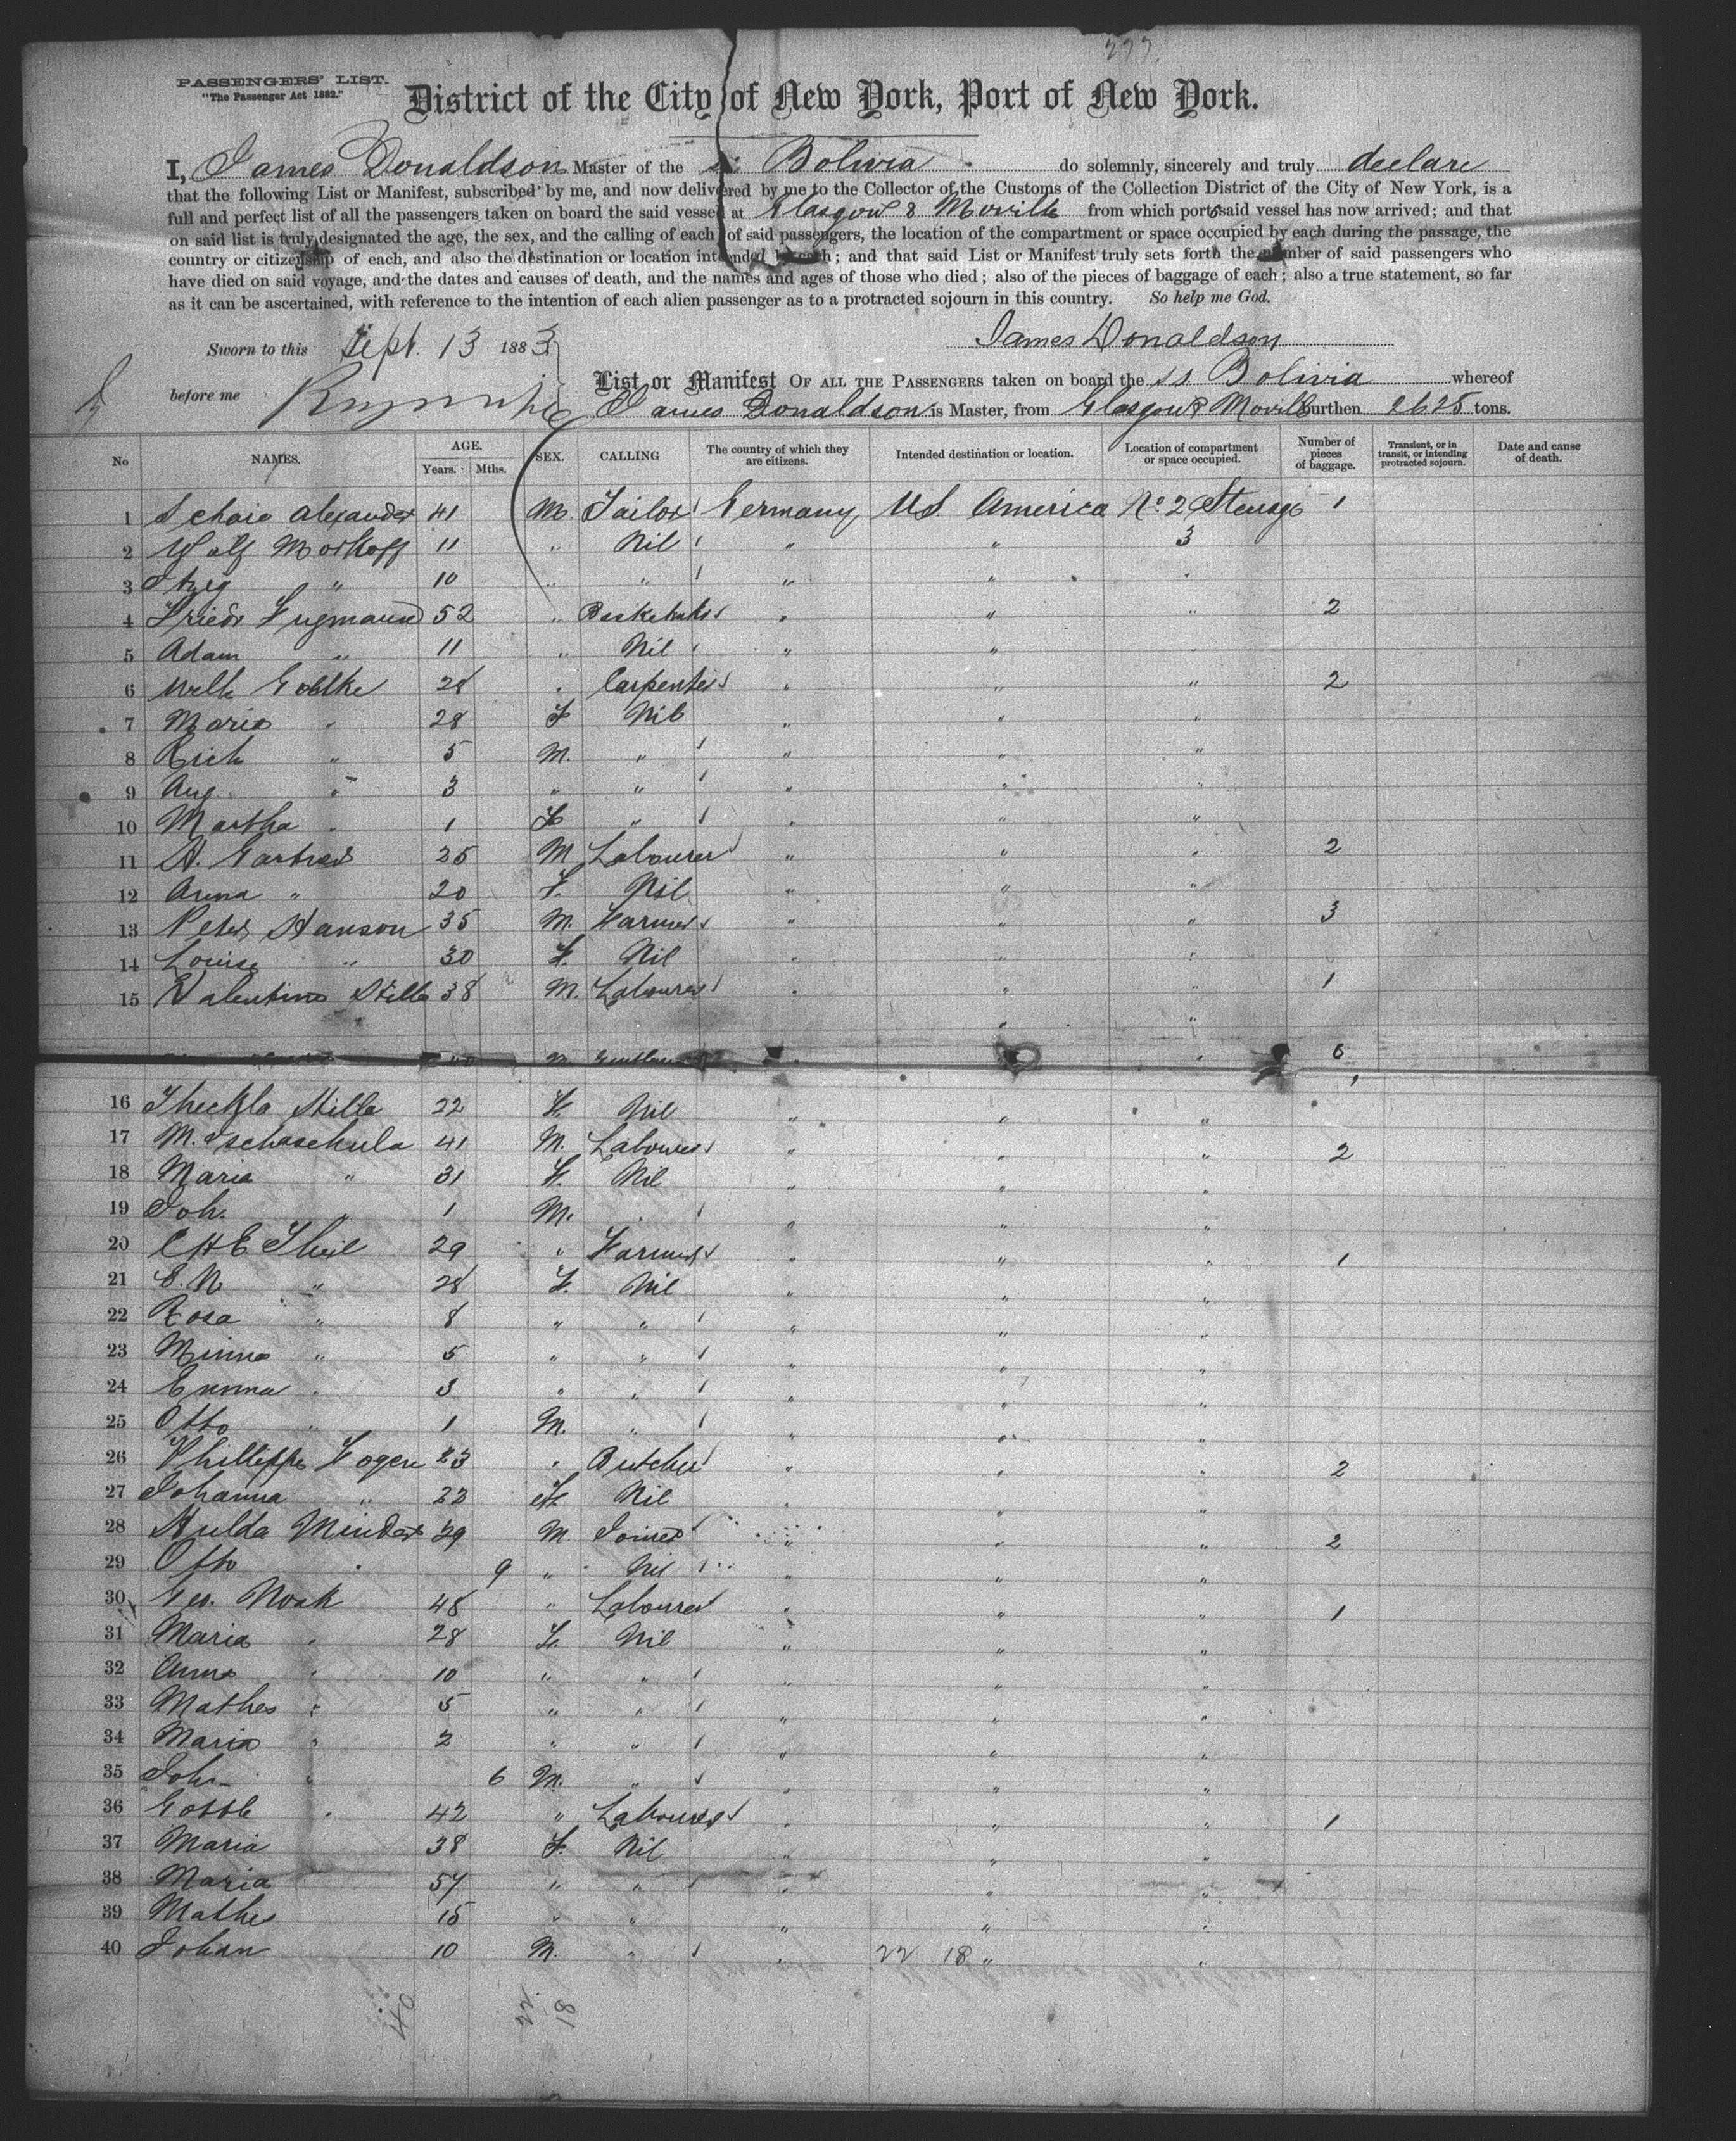 277.
PASSENGERS' LIST.
"The Passenger Act 1882."
District of the City of New York, Port of New York.
I, James Donaldson Master of the ss Bolivia do solemnly, sincerely and truly declare
that the following List or Manifest, subscribed by me, and now delivered by me to the Collector of the Customs of the Collection District of the City of New York, is a
full and perfect list of all the passengers taken on board the said vessel at Glasgow & Moville from which ports said vessel has now arrived; and that
on said list is truly designated the age, the sex, and the calling of each of said passengers, the location of the compartment or space occupied by each during the passage, the
country or citizenship of each, and also the destination or location intended by each; and that said List or Manifest truly sets forth the number of said passengers who
have died on said voyage, and the dates and causes of death, and the names and ages of those who died; also of the pieces of baggage of each; also a true statement, so far
as it can be ascertained, with reference to the intention of each alien passenger as to a protracted sojourn in this country. So help me God.
James Donaldson
Sworn to this Sept. 13 1883
before me
List or Manifest OF ALL THE PASSENGERS taken on board the ss Bolivia whereof
James Donaldson is Master, from Glasgow & Moville burthen 2625 tons.
No NAMES. AGE. Years. Mths. SEX. CALLING The country of which they are citizens. Intended destination or location. Location of compartment or space occupied. Number of pieces of baggage. Transient, or in transit, or intending protracted sojourn. Date and cause of death.
1 Schaie Alexander 41 M. Tailor Germany U.S. America No. 2 Steerage 1
2 Wolf Morkoff 11 " Nil " " 3
3 " 10 " " " " "
4 Friedr Fugmann 52 " " " " 2
5 Adam " 11 " Nil " "
6 Wilh Gohlke 28 " Carpenter " " " 2
7 Maria " 28 F Nil " " "
8 Rich " 5 M. " " " "
9 Aug. " 3 " " " " "
10 Martha " 1 F " " " "
11 H. 25 M Labourer " " " 2
12 Anna " 20 F. Nil " " "
13 Peter Hanson 35 M. Farmer " " " 3
14 Louise " 30 F. Nil " " "
15 Valentine Stille 38 M. Labourer " " " 1
16 Theckla Stille 22 F. Nil " " "
17 M. 41 M. Labourer " " " 2
18 Maria " 31 F. Nil " " "
19 Joh. " 1 M. " " " "
20 C H E Theil 29 " Farmer " " " 1
21 E. N " 28 F. Nil " " "
22 Rosa " 8 " " " " "
23 Minna " 5 " " " " "
24 Emma " 3 " " " " "
25 Otto " 1 M. " " " "
26 Phillippe 23 " Butcher " " " 2
27 Johanna " 22 F. Nil " " "
28 Hulda Minder 29 M. Joiner " " " 2
29 Otto " 9 " Nil " " "
30 Geo. Noak 48 " Labourer " " " 1
31 Maria " 28 F. Nil " " "
32 Anna " 10 " " " " "
33 Mathes " 5 " " " " "
34 Maria " 2 " " " " "
35 Joh " 6 M. " " " "
36 Gottl " 42 " Labourer " " " 1
37 Maria 38 F. Nil " " "
38 Maria 57 " " " " "
39 Mathes 15 " " " " "
40 Johan 10 M. " " 22 18 " "
40 22 18